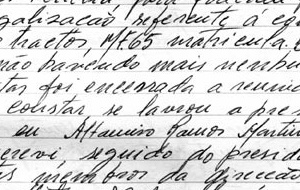 galização referente a co
tractos, M.F.65 matricula
não havendo mais nenhu
tar foi encerrada a reuniã
constar se lavrou a pres
eu Altamiro Ramos Martin
crevi, seguido do preside
s membros da direcção